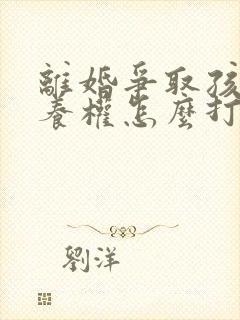 離婚爭取孩
養權怎麼打
劉洋